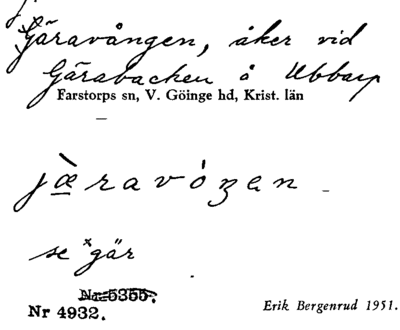 Gäravången, åker vid
Gärabacken å Ubbarp
Farstorps sn, V. Göinge hd, Krist. län
—
jæ̀ravóŋen
se ˣgär
Nr 5355.
Nr 4932.
Erik Bergenrud 1951.